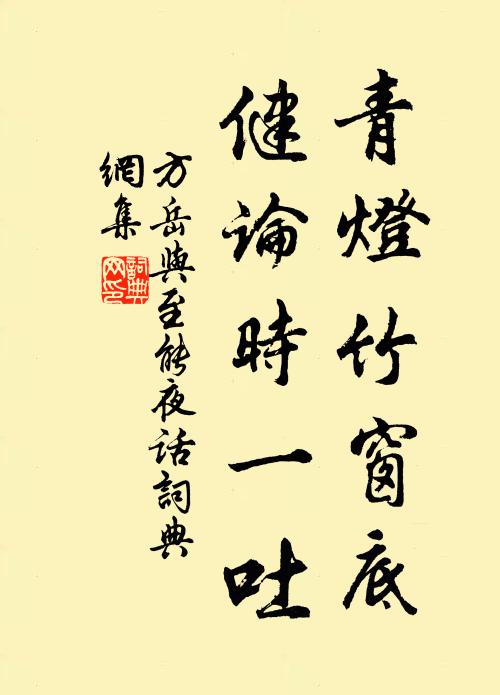 青燈竹窗底
健論時一吐
方岳與至能夜话詞典
網集
詞典
网印